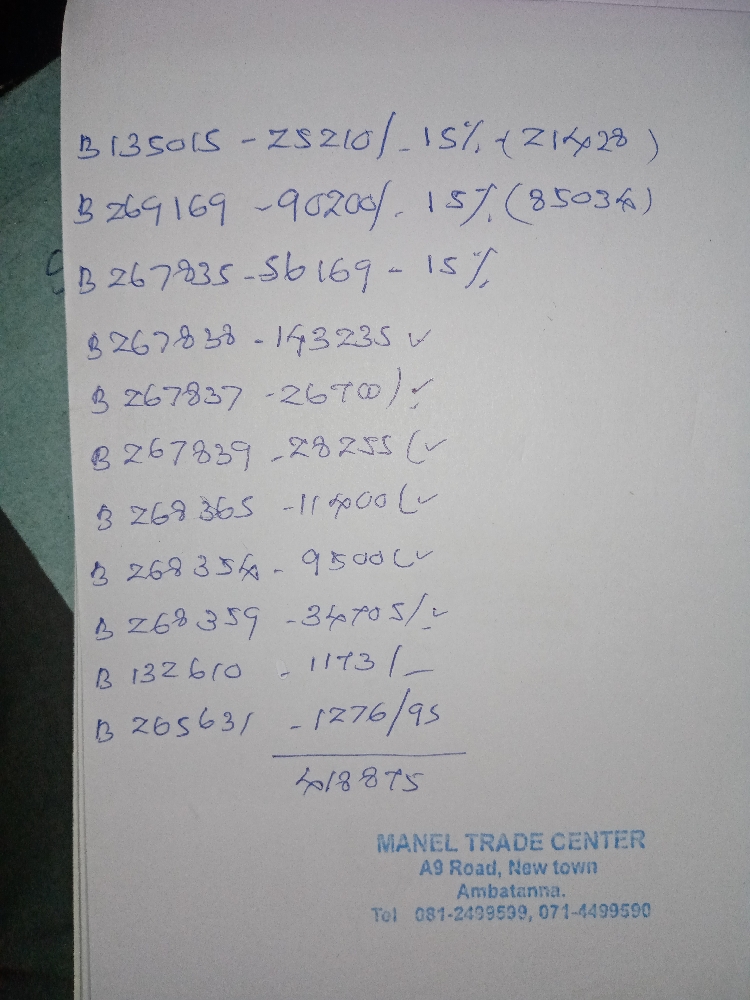 B 135015 - 25210/- 15% (21428)
B 269169 - 90200/- 15% (85034)
B 267835 - 56169 - 15%
B 267838 - 143235 ✓
B 267837 - 26700/ ✓
B 267839 - 28255/ ✓
B 268365 - 11400/ ✓
B 268354 - 9500/ ✓
B 268359 - 34705/ ✓
B 132610 - 1173/-
B 265631 - 1276/95
418875
MANEL TRADE CENTER
A9 Road, New town
Ambatanna.
Tel 081-2499599, 071-4499590